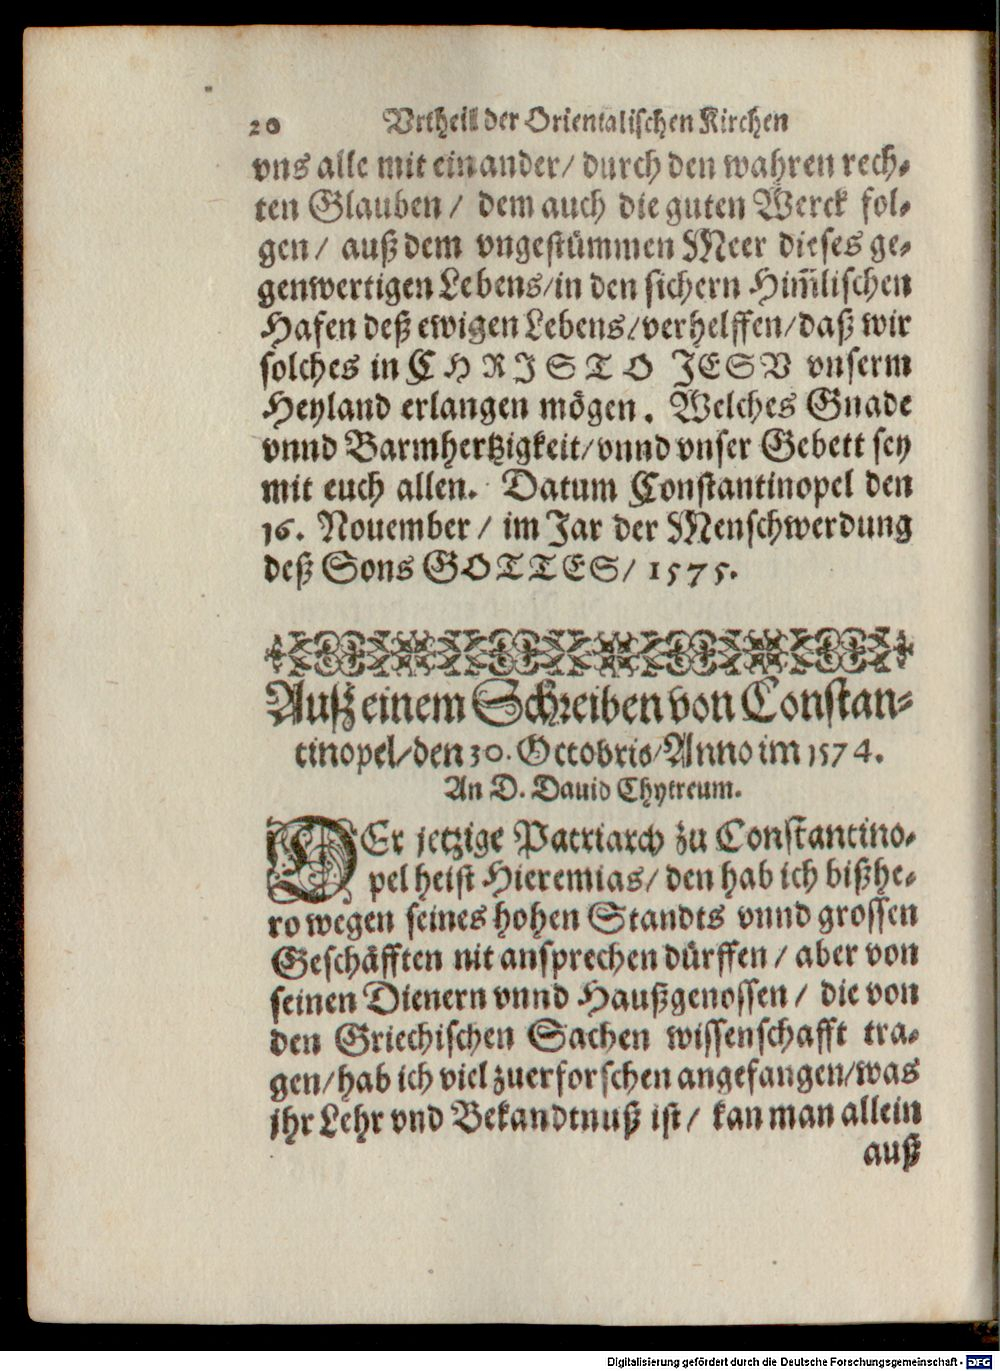 20 Vrtheil der Orientalischen Kirchen
vns alle mit einander/ durch den wahren rech-
ten Glauben / dem auch die guten Werck fol-
gen/ auß dem vngestümmen Meer dieses ge-
genwertigen Lebens/in den sichern Him̃lischen
Hafen deß ewigen Lebens/verhelffen/daß wir
solches in CHRISTO JESV vnserm
Heyland erlangen mögen. Welches Gnade
vnnd Barmhertzigkeit/vnnd vnser Gebett sey
mit euch allen. Datum Constantinopel den
16. Nouember / im Jar der Menschwerdung
deß Sons GOTTES/ 1575.
Auß einem Schreiben von Constan-
tinopel/den 30. Octobris/Anno im 1574.
An D. Dauid Chytreum.
DEr jetzige Patriarch zu Constantino-
pel heist Hieremias/ den hab ich bißhe-
ro wegen seines hohen Standts vnnd grossen
Geschäfften nit ansprechen dürffen / aber von
seinen Dienern vnnd Haußgenossen / die von
den Griechischen Sachen wissenschafft tra-
gen/hab ich viel zuerforschen angefangen/was
jhr Lehr vnd Bekandtnuß ist/ kan man allein
auß
Digitalisierung gefördert durch die Deutsche Forschungsgemeinschaft - DFG